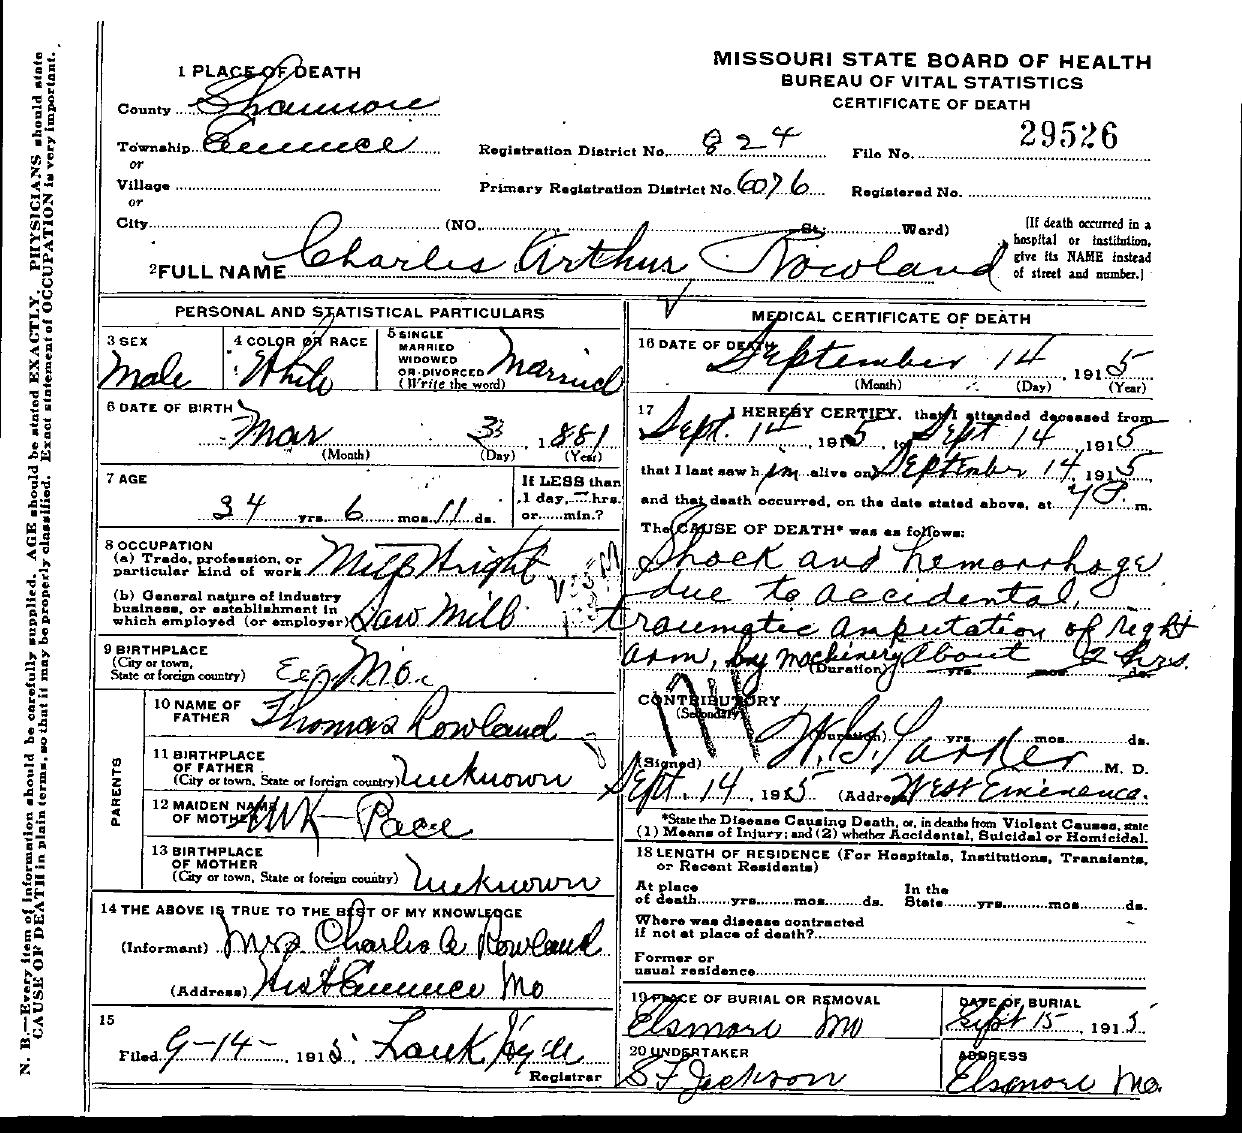 MISSOURI STATE BOARD OF HEALTH
BUREAU OF VITAL STATISTICS
CERTIFICATE OF DEATH
1 PLACE OF DEATH
County
Township
or
Village
or
City (NO. St; Ward)
Registration District No. 824
File No. 29526
Primary Registration District No. 6076
Registered No.
[If death occurred in a
hospital or institution,
give its NAME instead
of street and number.]
2 FULL NAME Charles Arthur Rowland
PERSONAL AND STATISTICAL PARTICULARS
3 SEX
Male
4 COLOR OR RACE
White
5 SINGLE
MARRIED
WIDOWED
OR DIVORCED
(Write the word)
Married
6 DATE OF BIRTH
Mar 3 1881
(Month) (Day) (Year)
7 AGE
34 yrs. 6 mos. 11 ds.
If LESS than
1 day, hrs.
or min.?
8 OCCUPATION
(a) Trade, profession, or
particular kind of work
(b) General nature of industry
business, or establishment in
which employed (or employer) Saw Mill
9 BIRTHPLACE
(City or town,
State or foreign country) Mo.
PARENTS
10 NAME OF
FATHER
Thomas Rowland
11 BIRTHPLACE
OF FATHER
(City or town, State or foreign country) Unknown
12 MAIDEN NAME
OF MOTHER
Pace
13 BIRTHPLACE
OF MOTHER
(City or town, State or foreign country) Unknown
14 THE ABOVE IS TRUE TO THE BEST OF MY KNOWLEDGE
(Informant) Mrs Charlie A Rowland
(Address) West Eminence Mo
15
Filed 9-14- 1915
Registrar
MEDICAL CERTIFICATE OF DEATH
16 DATE OF DEATH
September 14, 1915
(Month) (Day) (Year)
17 I HEREBY CERTIFY, that I attended deceased from
Sept. 14, 1915, to Sept 14, 1915
that I last saw him alive on September 14, 1915
and that death occurred, on the date stated above, at m.
The CAUSE OF DEATH* was as follows:
Shock and hemorrhage
due to accidental,
traumatic amputation of right
arm, by machinery About hrs.
(Duration) yrs. mos. ds.
CONTRIBUTORY
(Secondary)
(Duration) yrs. mos. ds.
(Signed) M. D.
Sept. 14, 1915 (Address) West Eminence.
*State the Disease Causing Death, or, in deaths from Violent Causes, state
(1) Means of Injury; and (2) whether Accidental, Suicidal or Homicidal.
18 LENGTH OF RESIDENCE (For Hospitals, Institutions, Transients,
or Recent Residents)
At place
of death yrs. mos. ds.
In the
State yrs. mos. ds.
Where was disease contracted
if not at place of death?
Former or
usual residence
19 PLACE OF BURIAL OR REMOVAL
Elsmore Mo
DATE OF BURIAL
Sept 15, 1915
20 UNDERTAKER
S F Jackson
ADDRESS
Elsmore Mo.
N. B.—Every item of information should be carefully supplied. AGE should be stated EXACTLY. PHYSICIANS should state
CAUSE OF DEATH in plain terms, so that it may be properly classified. Exact statement of OCCUPATION is very important.